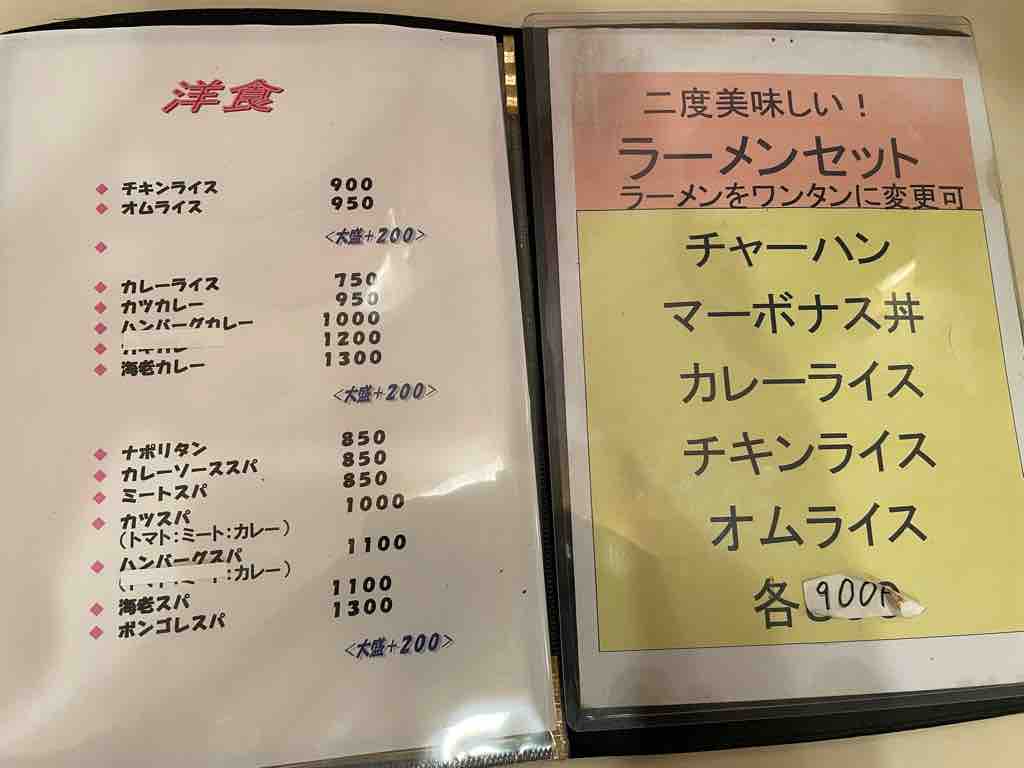 洋食
チキンライス 900
オムライス 950
<大盛+200>
カレーライス 750
カツカレー 950
ハンバーグカレー 1000
1200
海老カレー 1300
<大盛+200>
ナポリタン 850
カレーソーススパ 850
ミートスパ 850
カツスパ 1000
(トマト:ミート:カレー)
ハンバーグスパ 1100
:カレー)
海老スパ 1100
ボンゴレスパ 1300
<大盛+200>
二度美味しい!
ラーメンセット
ラーメンをワンタンに変更可
チャーハン
マーボナス丼
カレーライス
チキンライス
オムライス
各900